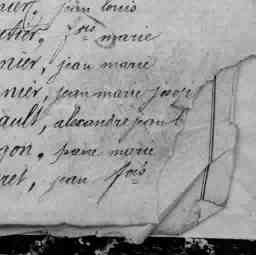 jean louis
frs marie
nier, jean marie
nier, jean marie josep
ault, alexandre jean b
gon, pierre marie
ret, jean frs